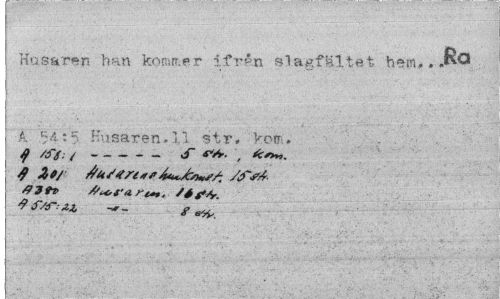 Husaren han kommer ifrån slagfältet hem... Ra
A 54:5 Husaren.11 str. kom.
A 158:1 - - - - - 5 str., kom.
A 201 Husarens hemkomst. 15 str.
A 380 Husaren. 16 str.
A 515:22 -"- 8 str.